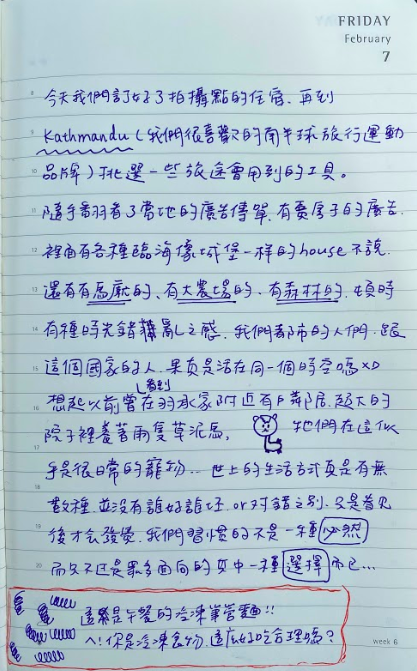 FRIDAY
February
7
8 今天我們訂好了拍攝點的住宿、再到
9 Kathmandu(我們很喜歡的南半球旅行運動
10 品牌)挑選一些旅途會用到的工具。
11 隨手翻著了當地的廣告傳單,有賣房子的廣告.
12 裡面有各種臨海像城堡一樣的house不說.
13 還有有馬廄的、有大農場的、有森林的.頓時
14 有種時光錯亂之感.我們都市的人們.跟
15 這個國家的人.果真是活在同一個時空嗎XD
看到
16 想起以前曾在羽承家附近有戶鄰居.超大的
17 院子裡養著兩隻草泥馬, 牠們在這似
18 乎是很日常的寵物...世上的生活方式真是有無
19 數種.並沒有誰好誰壞.or對錯之別.只是看見
後才會發覺.我們習慣的不是一種必然
20 而只不過是眾多面向的其中一種選擇而已...
week 6
這是午餐的冷凍筆管麵!!
ㄟ!你是冷凍食物.這麼好吃合理嗎?